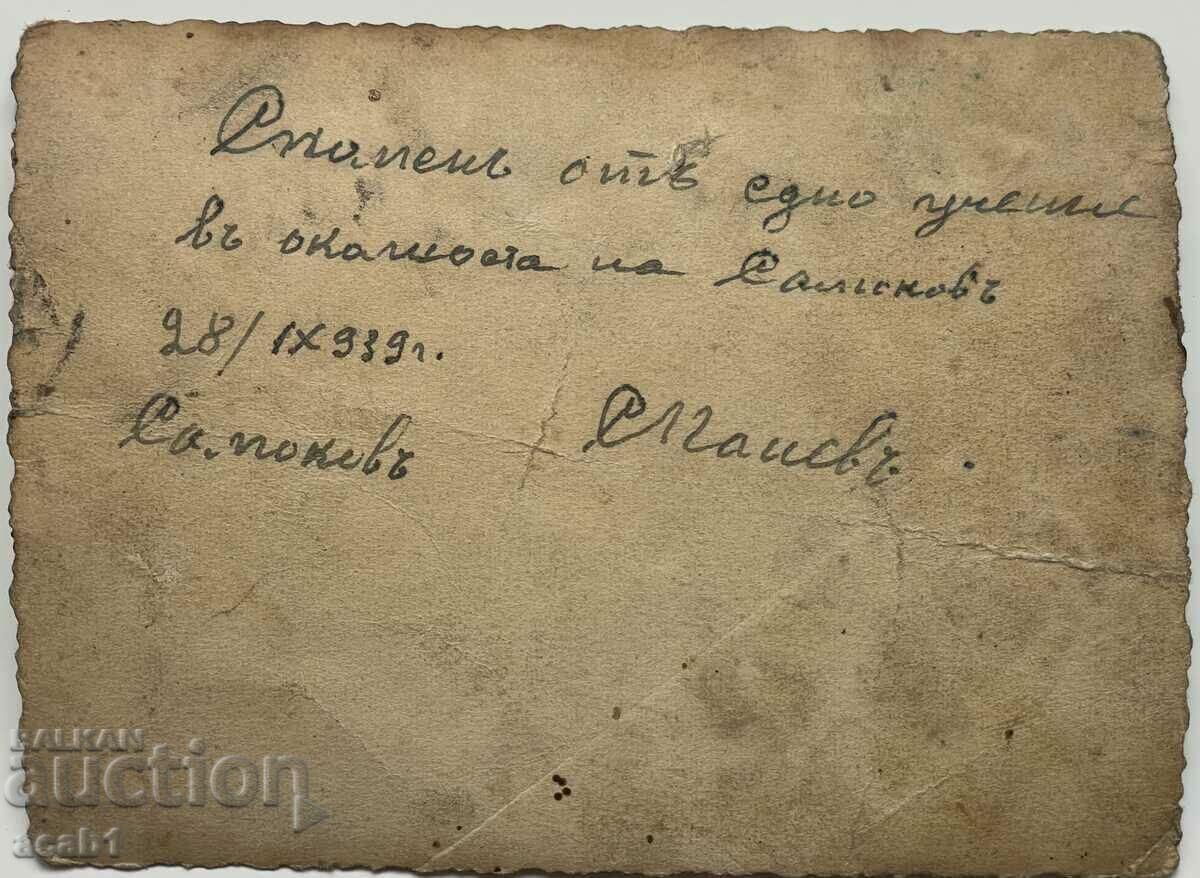 Споменъ отъ едно учение
въ околноста на Самоковъ
28/IX939г.
Самоковъ
BALKAN
auction
acab1